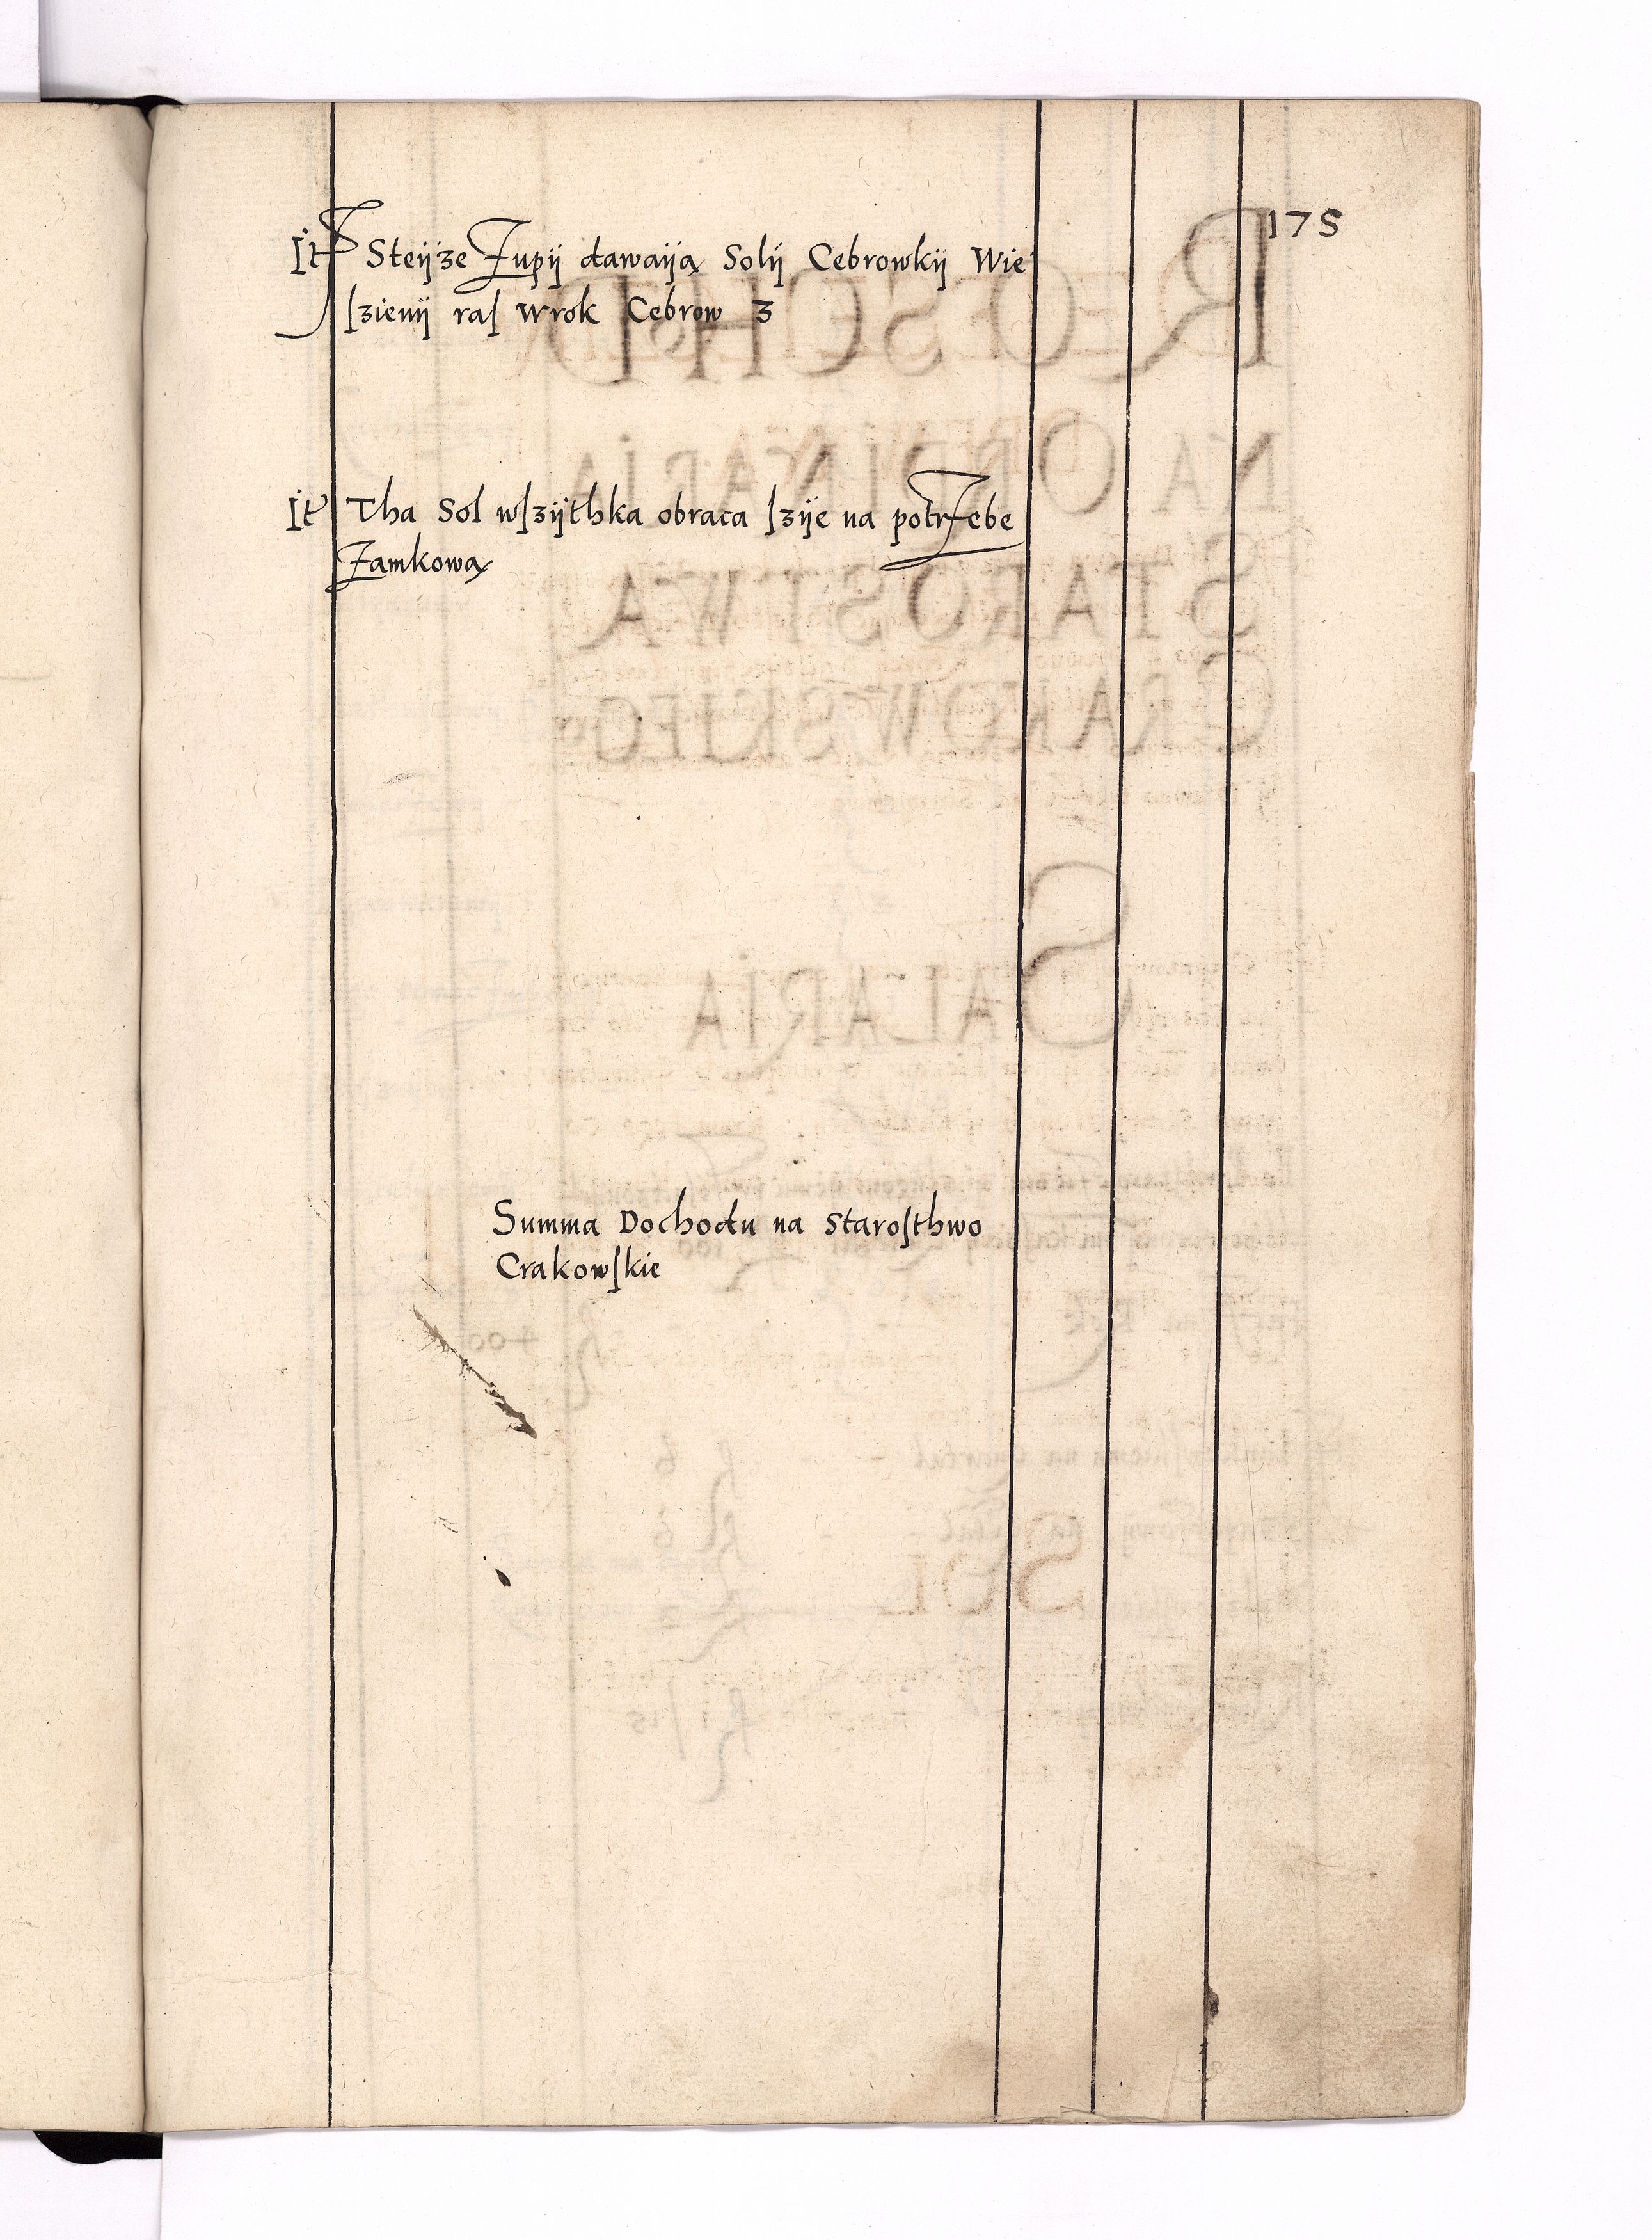 175
It Steÿze Zupÿ dawaÿą Solÿ Cebrowkÿ Wie
ſzienÿ raſ wrok Cebrow 3
It Tha Sol wſzÿthka obraca ſzÿe na potrzebe
Zamkową
Summa Dochodu na Staroſthwo
Crakowſkie